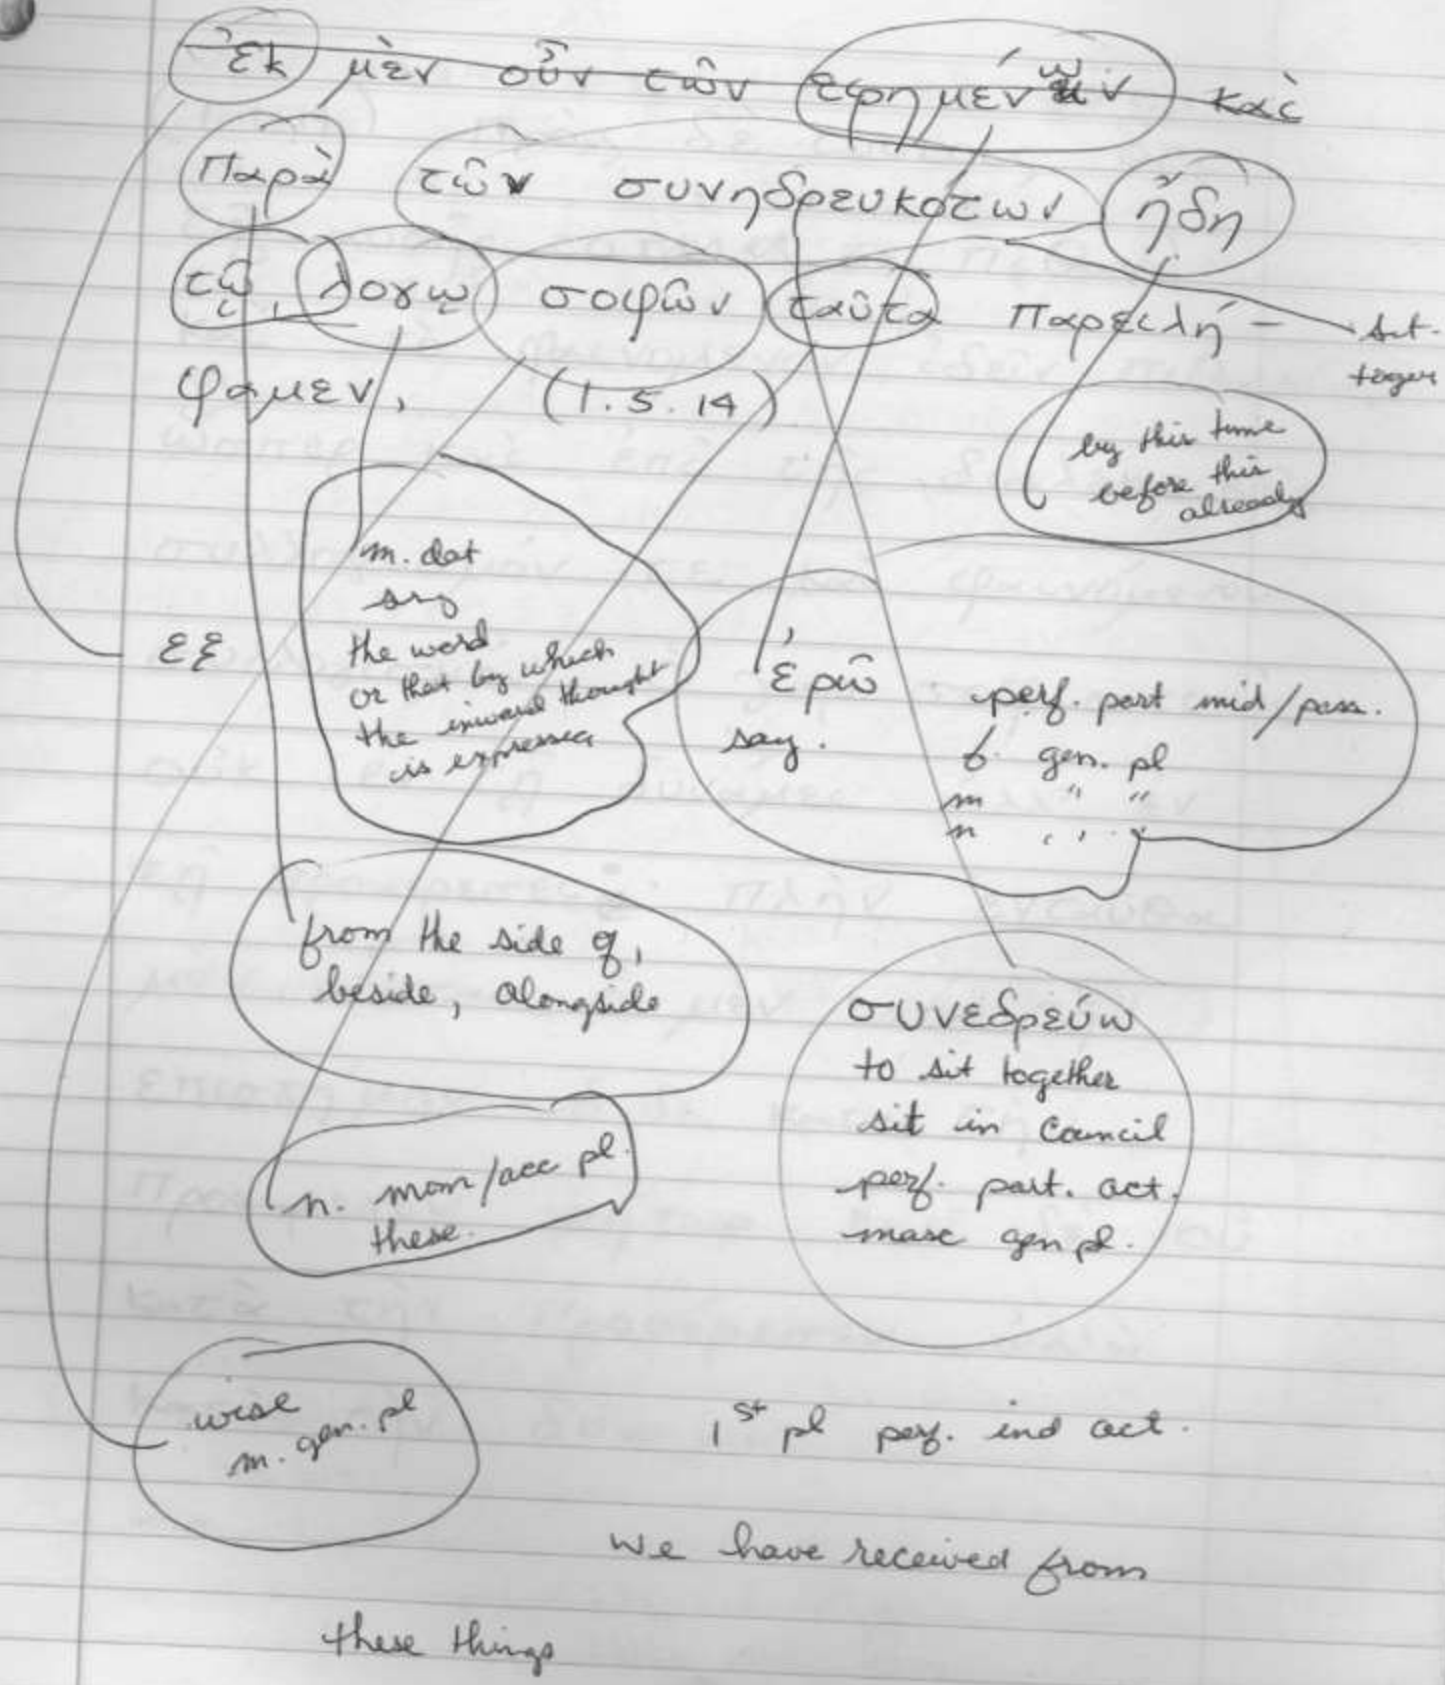 ἐκ μὲν οὖν τῶν εφημένων καὶ
Παρὰ τῶν συνηδρευκοτων ἤδη
τῷ λογῳ σοφῶν ταῦτα παρειλή-
φαμεν, (1.5.14)
by this time
before this
already
m. dat
sing
the word
or that by which
the inward thought
is expressed
εξ
ἐρῶ
say.
perf. part mid/pass.
f. gen. pl
m " "
n " "
from the side of,
beside, alongside
συνεδρεύω
to sit together
sit in Council
perf. part. act.
masc gen pl.
n. nom/acc pl.
these.
wise
m. gen. pl
1st pl perf. ind act.
we have received from
these things